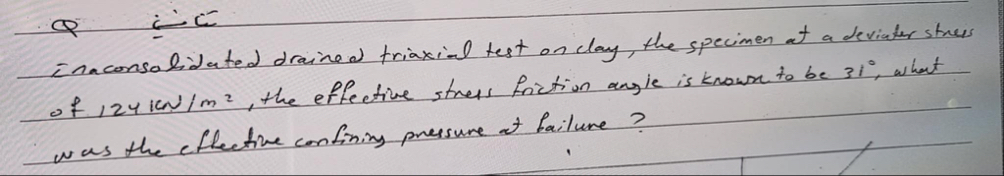 Q
in a consolidated drained triaxial test on clay, the specimen at a deviater stress
of 124 kN/m², the effective stress friction angle is known to be 31°, what
was the effective confining pressure at failure ?